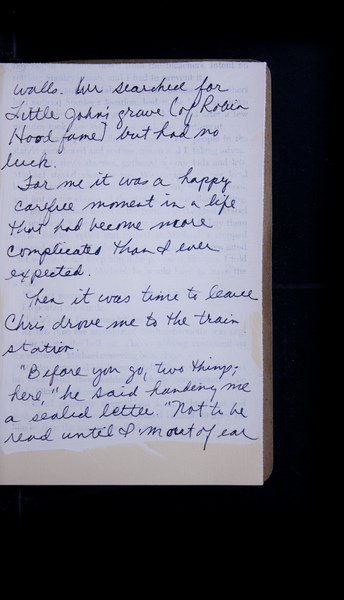 walls. We searched for
Little John's grave (of Robin
Hood fame) but had no
luck.
For me it was a happy
carefree moment in a life
that had become more
complicated than I ever
expected.
When it was time to leave
Chris drove me to the train
station.
"Before you go, two things;
here," he said handing me
a sealed letter. "Not to be
read until I'm out of ear